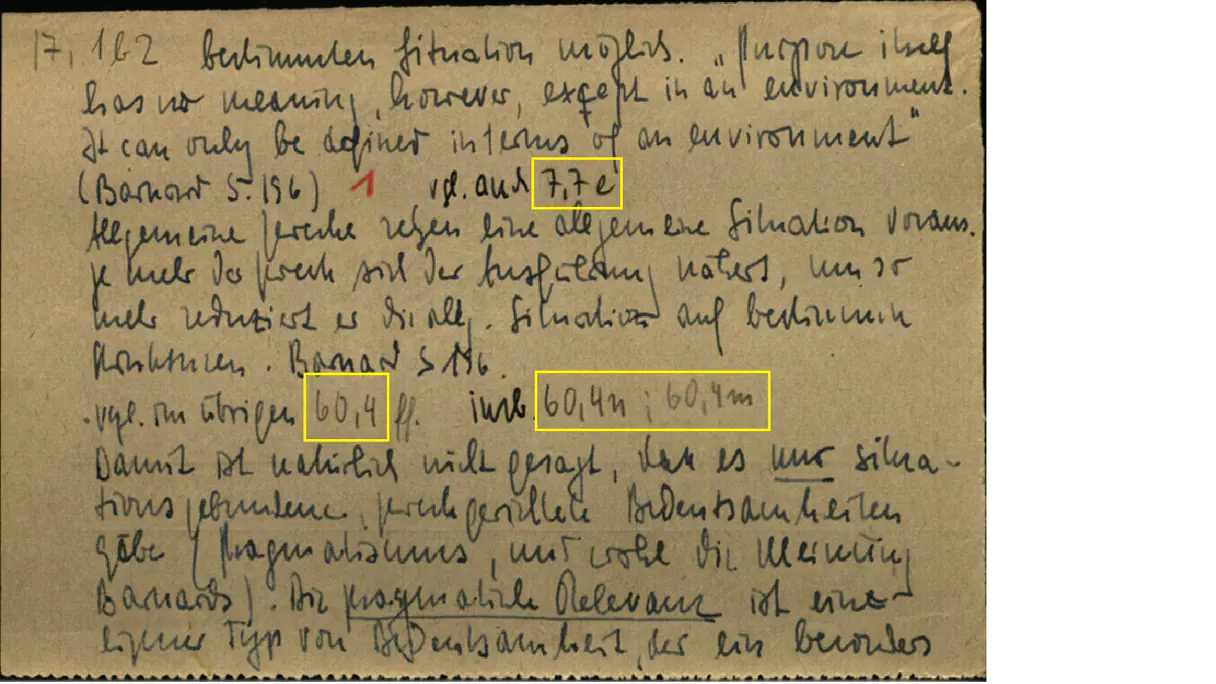 17,1b2 bestimmten Situation möglich. „Purpose itself
has no meaning, however, except in an environment.
It can only be defined in terms of an environment"
(Barnard S. 196) 1 vgl. auch 7,7e
Allgemeine Zwecke setzen eine allgemeine Situation voraus.
je mehr der Zweck sich der Ausführung nähert, um so
mehr reduziert er die allg. Situation auf bestimmte
Strukturen. Barnard S 196.
vgl. im übrigen 60,4 ff. insb. 60,4n ; 60,4m
Damit ist natürlich nicht gesagt, daß es nur situa-
tionsgebundene, zweckgerichtete Bedeutsamkeiten
gäbe (Pragmatismus, und wohl die Meinung
Barnards). Die pragmatische Relevanz ist ein
eigener Typ von Bedeutsamkeit, der ein besonders